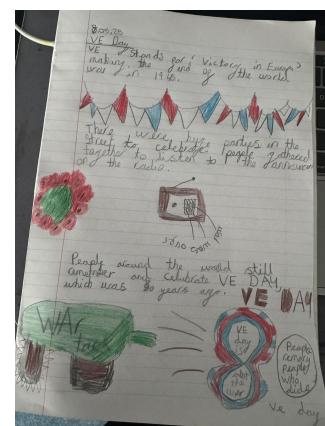 8.05.25
VE Day
VE stands for 'victory in Europe'
making the end of the world
war in 1945.
There were huge parties in the
street to celebrate people gathered
together to listen to the
on the radio.
People around the world still
remember and celebrate VE DAY,
which was 80 years ago.
VE DAY
WAr
tank
VE
day
is
the war
People
remember
people
who
died
ve day